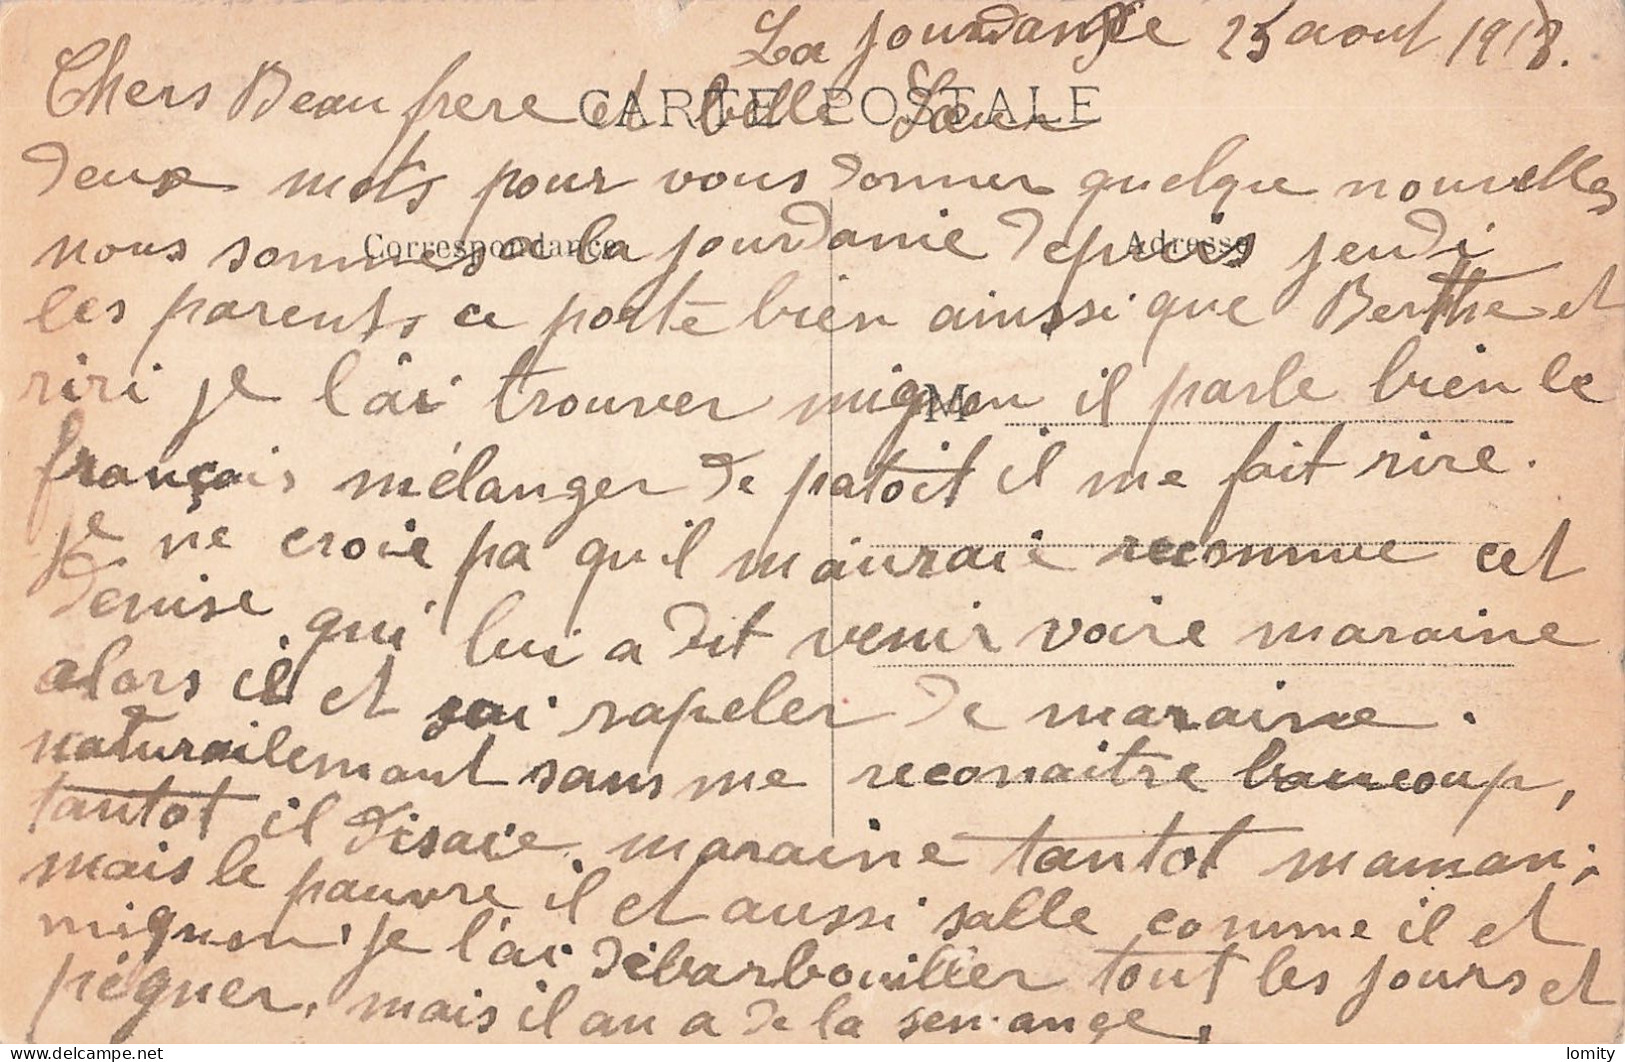 La Jourdanie 25 aout 1918.
Chers Beau frere et belle Sœur
CARTE POSTALE
deux mots pour vous donner quelque nouvelles
nous sommes a la jourdanie depuis jeudi
Correspondance
Adresse
les parents ce porte bien ainssi que Berthe et
riri je l'ai trouver mignon il parle bien le
M
français mélanger de patoit il me fait rire.
je ne croie pa qu'il m'auraie reconnue cet
denise qui lui a dit venir voire maraine
alors il et sai rapeler de maraine.
naturailemant sans me reconaitre baucoup,
tantot il disaie maraine tantot maman;
mais le pauvre il et aussi salle comme il et
mignon, je l'ai débarbouiller tout les jours et
pégner, mais il an a de la semange,
lomity